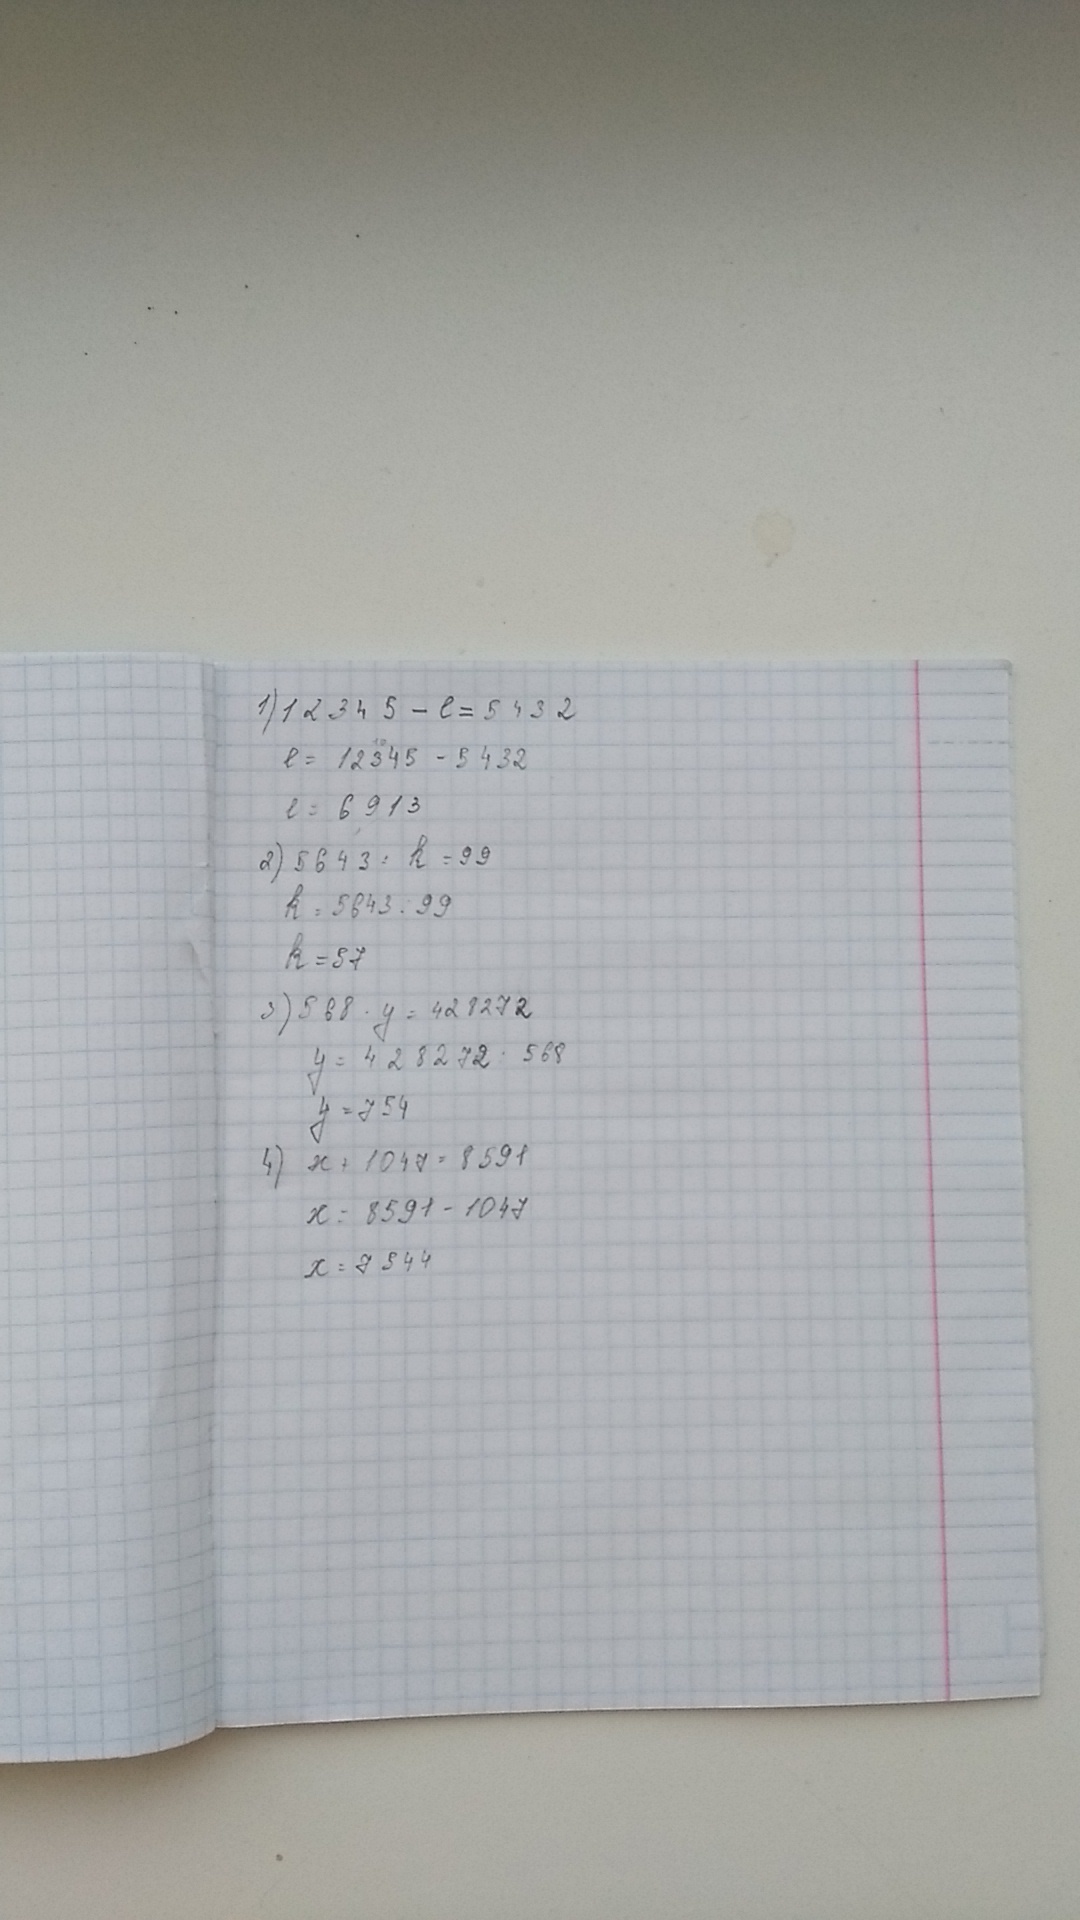 1) 12345 - l = 5432
l = 12345 - 5432
l = 6913
2) 5643 : k = 99
k = 5643 : 99
k = 57
3) 568 · y = 428272
y = 428272 : 568
y = 754
4) x + 1047 = 8591
x = 8591 - 1047
x = 7544